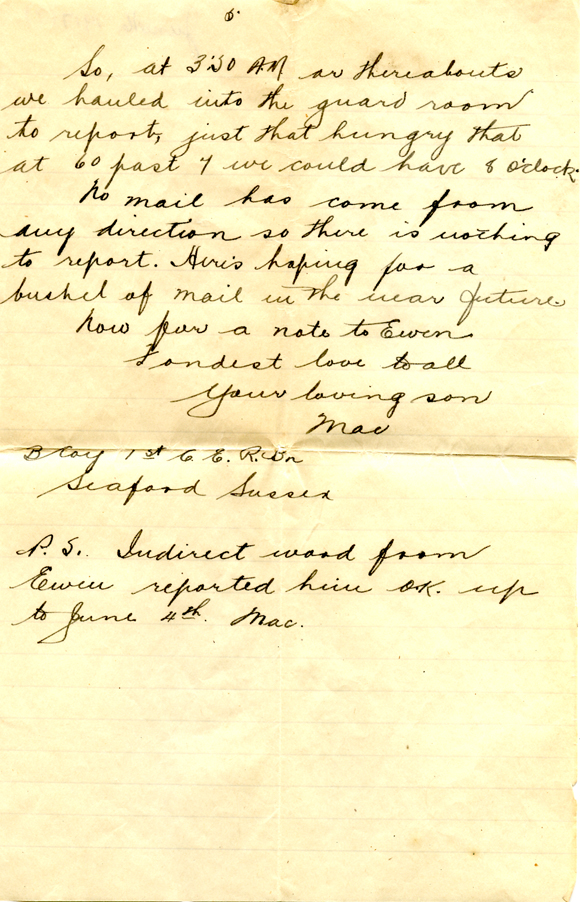 6.
So, at 3:30 AM or thereabouts
we hauled into the guard room
to report, just that hungry that
at 60 past 7 we could have 8 o'clock.
No mail has come from
any direction so there is nothing
to report. Here's hoping for a
bushel of mail in the near future.
Now for a note to Ewen.
Fondest love to all
Your loving son
Mac
B Coy 1st C. E. R. Bn
Seaford Sussex
P.S. Indirect word from
Ewen reported him OK. up
to June 4th. Mac.